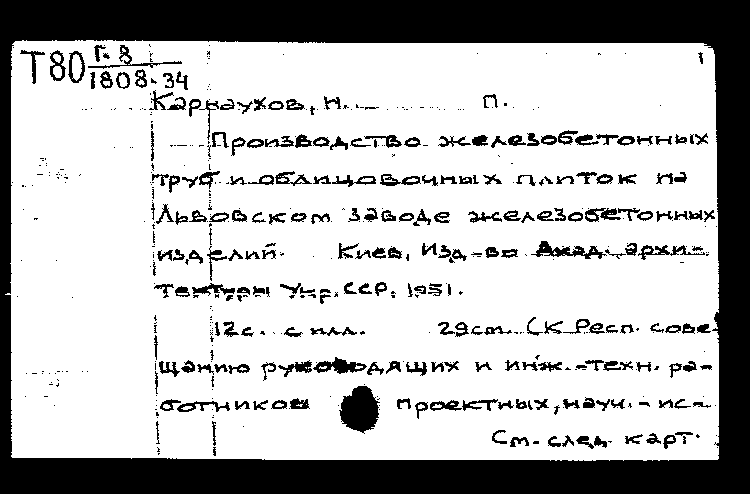 Т80 Г-8
1808-34
1
Карнаухов, Н. П.
Производство железобетонных
труб и облицовочных плиток на
Львовском заводе железобетонных
изделий. Киев, Изд-во Акад. архи-
тектуры Укр. ССР, 1951.
12с. с илл. 29см. (К Респ. сове-
щанию руководящих и инж.-техн. ра-
ботников проектных, науч.-ис-
См. след. карт.